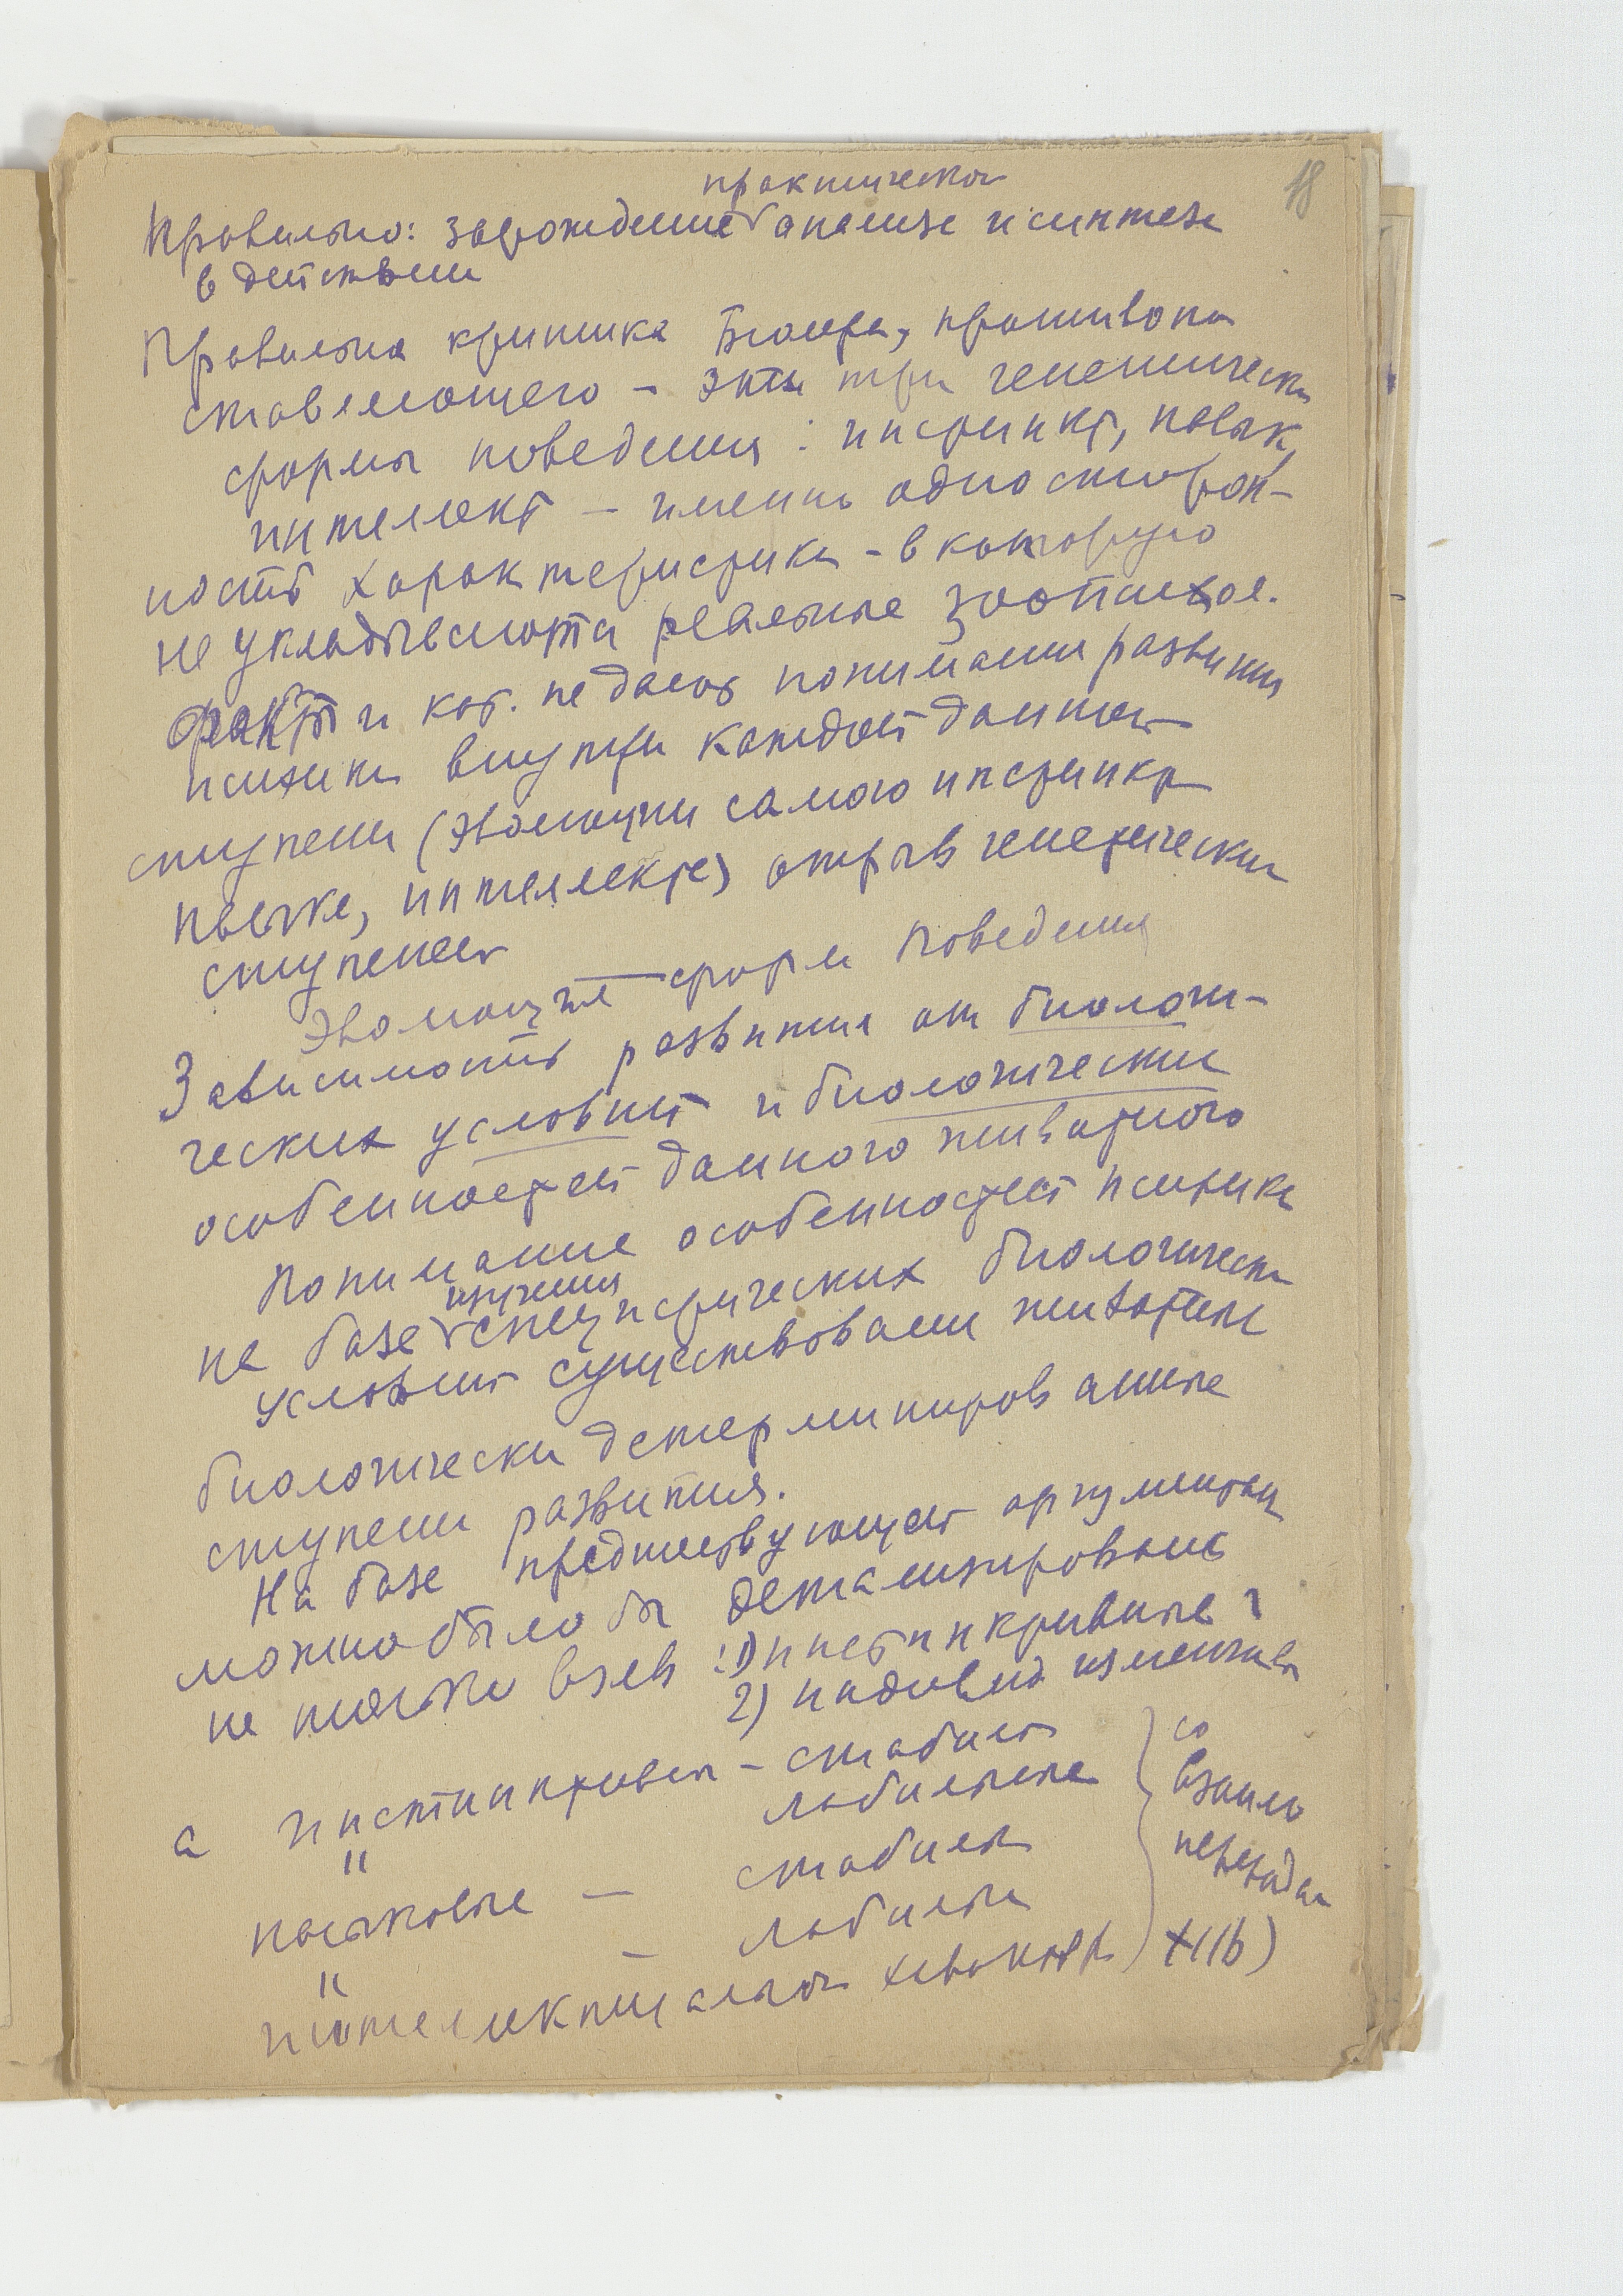 18
практическ
Правильно: зарождение анализа и синтеза
в действии
Правильна критика Бюлера, противопо
ставляющего – эти три генетическ
формы поведения: инстинкт, навык,
интеллект – именно односторон-
ность характеристика – в которую
не укладываются реальные зоопсихол.
факты и кот. не дают понимания развития
психики внутри каждой данной
ступени (эволюции самого инстинкт
навыка, интеллекта) отрыв генетических
ступеней
Эволюция форм поведения
Зависимость развития от биологи-
ческих условий и биологических
особенностей данного животного
Понимание особенностей психики
изучения
на базе специфических биологическ
условий существования животные
биологически детерминированные
ступени развития.
На базе предшествующей аргументац
можно было бы детализировать
не только взяв: 1) инстинктивные
2) индивид изменчив
а инстинктивн – стабил
" лабильные
навыковые – стабильн
" – лабильн
интеллектуальн
со
взаимо
переходам